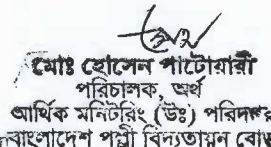 মোঃ হোসেন পাটোয়ারী
পরিচালক, অর্থ
আর্থিক মনিটরিং (উঃ) পরিদপ্তর
বাংলাদেশ পল্লী বিদ্যুতায়ন বোর্ড